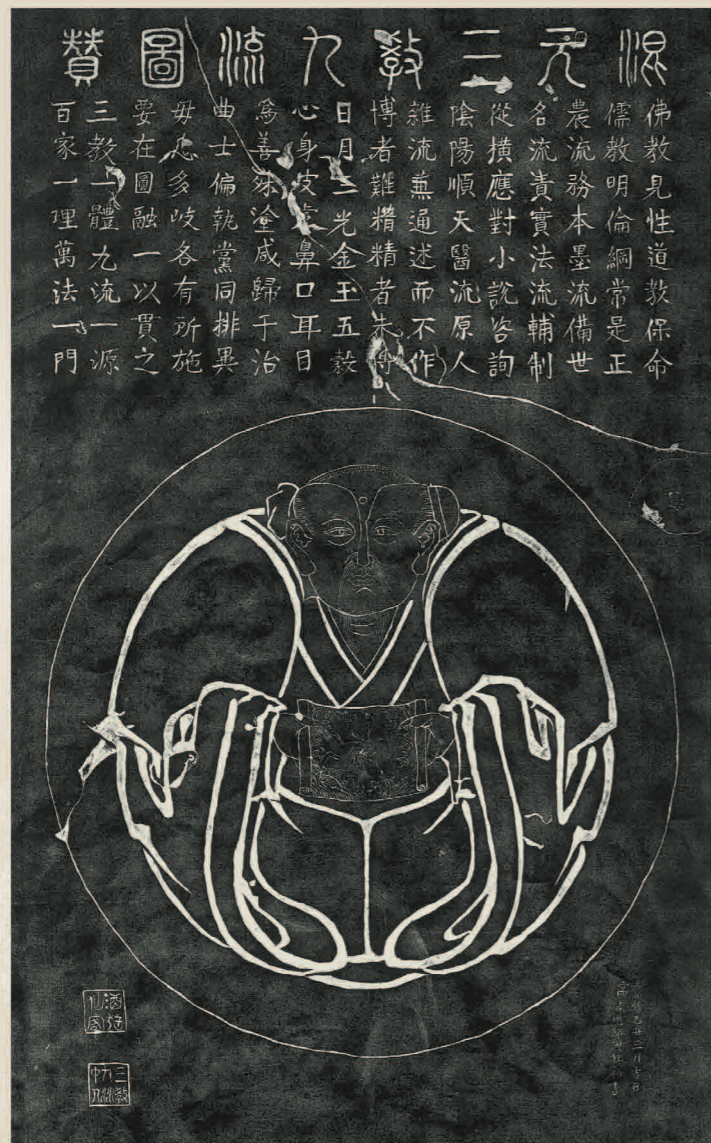 混元三教九流圖贊
佛教見性道教保命
儒教明倫綱常是正
農流務本墨流備世
名流責實法流輔制
從橫應對小說咨詢
陰陽順天醫流原人
雜流兼通述而不作
博者難精精者未博
日月三光金玉五穀
心身皮膚鼻口耳目
爲善殊塗咸歸于治
曲士偏執黨同排異
毋患多岐各有所施
要在圓融一以貫之
三教一體九流一源
百家一理萬法一門
乙丑三月吉日
酒狂仙客
三教九流中人